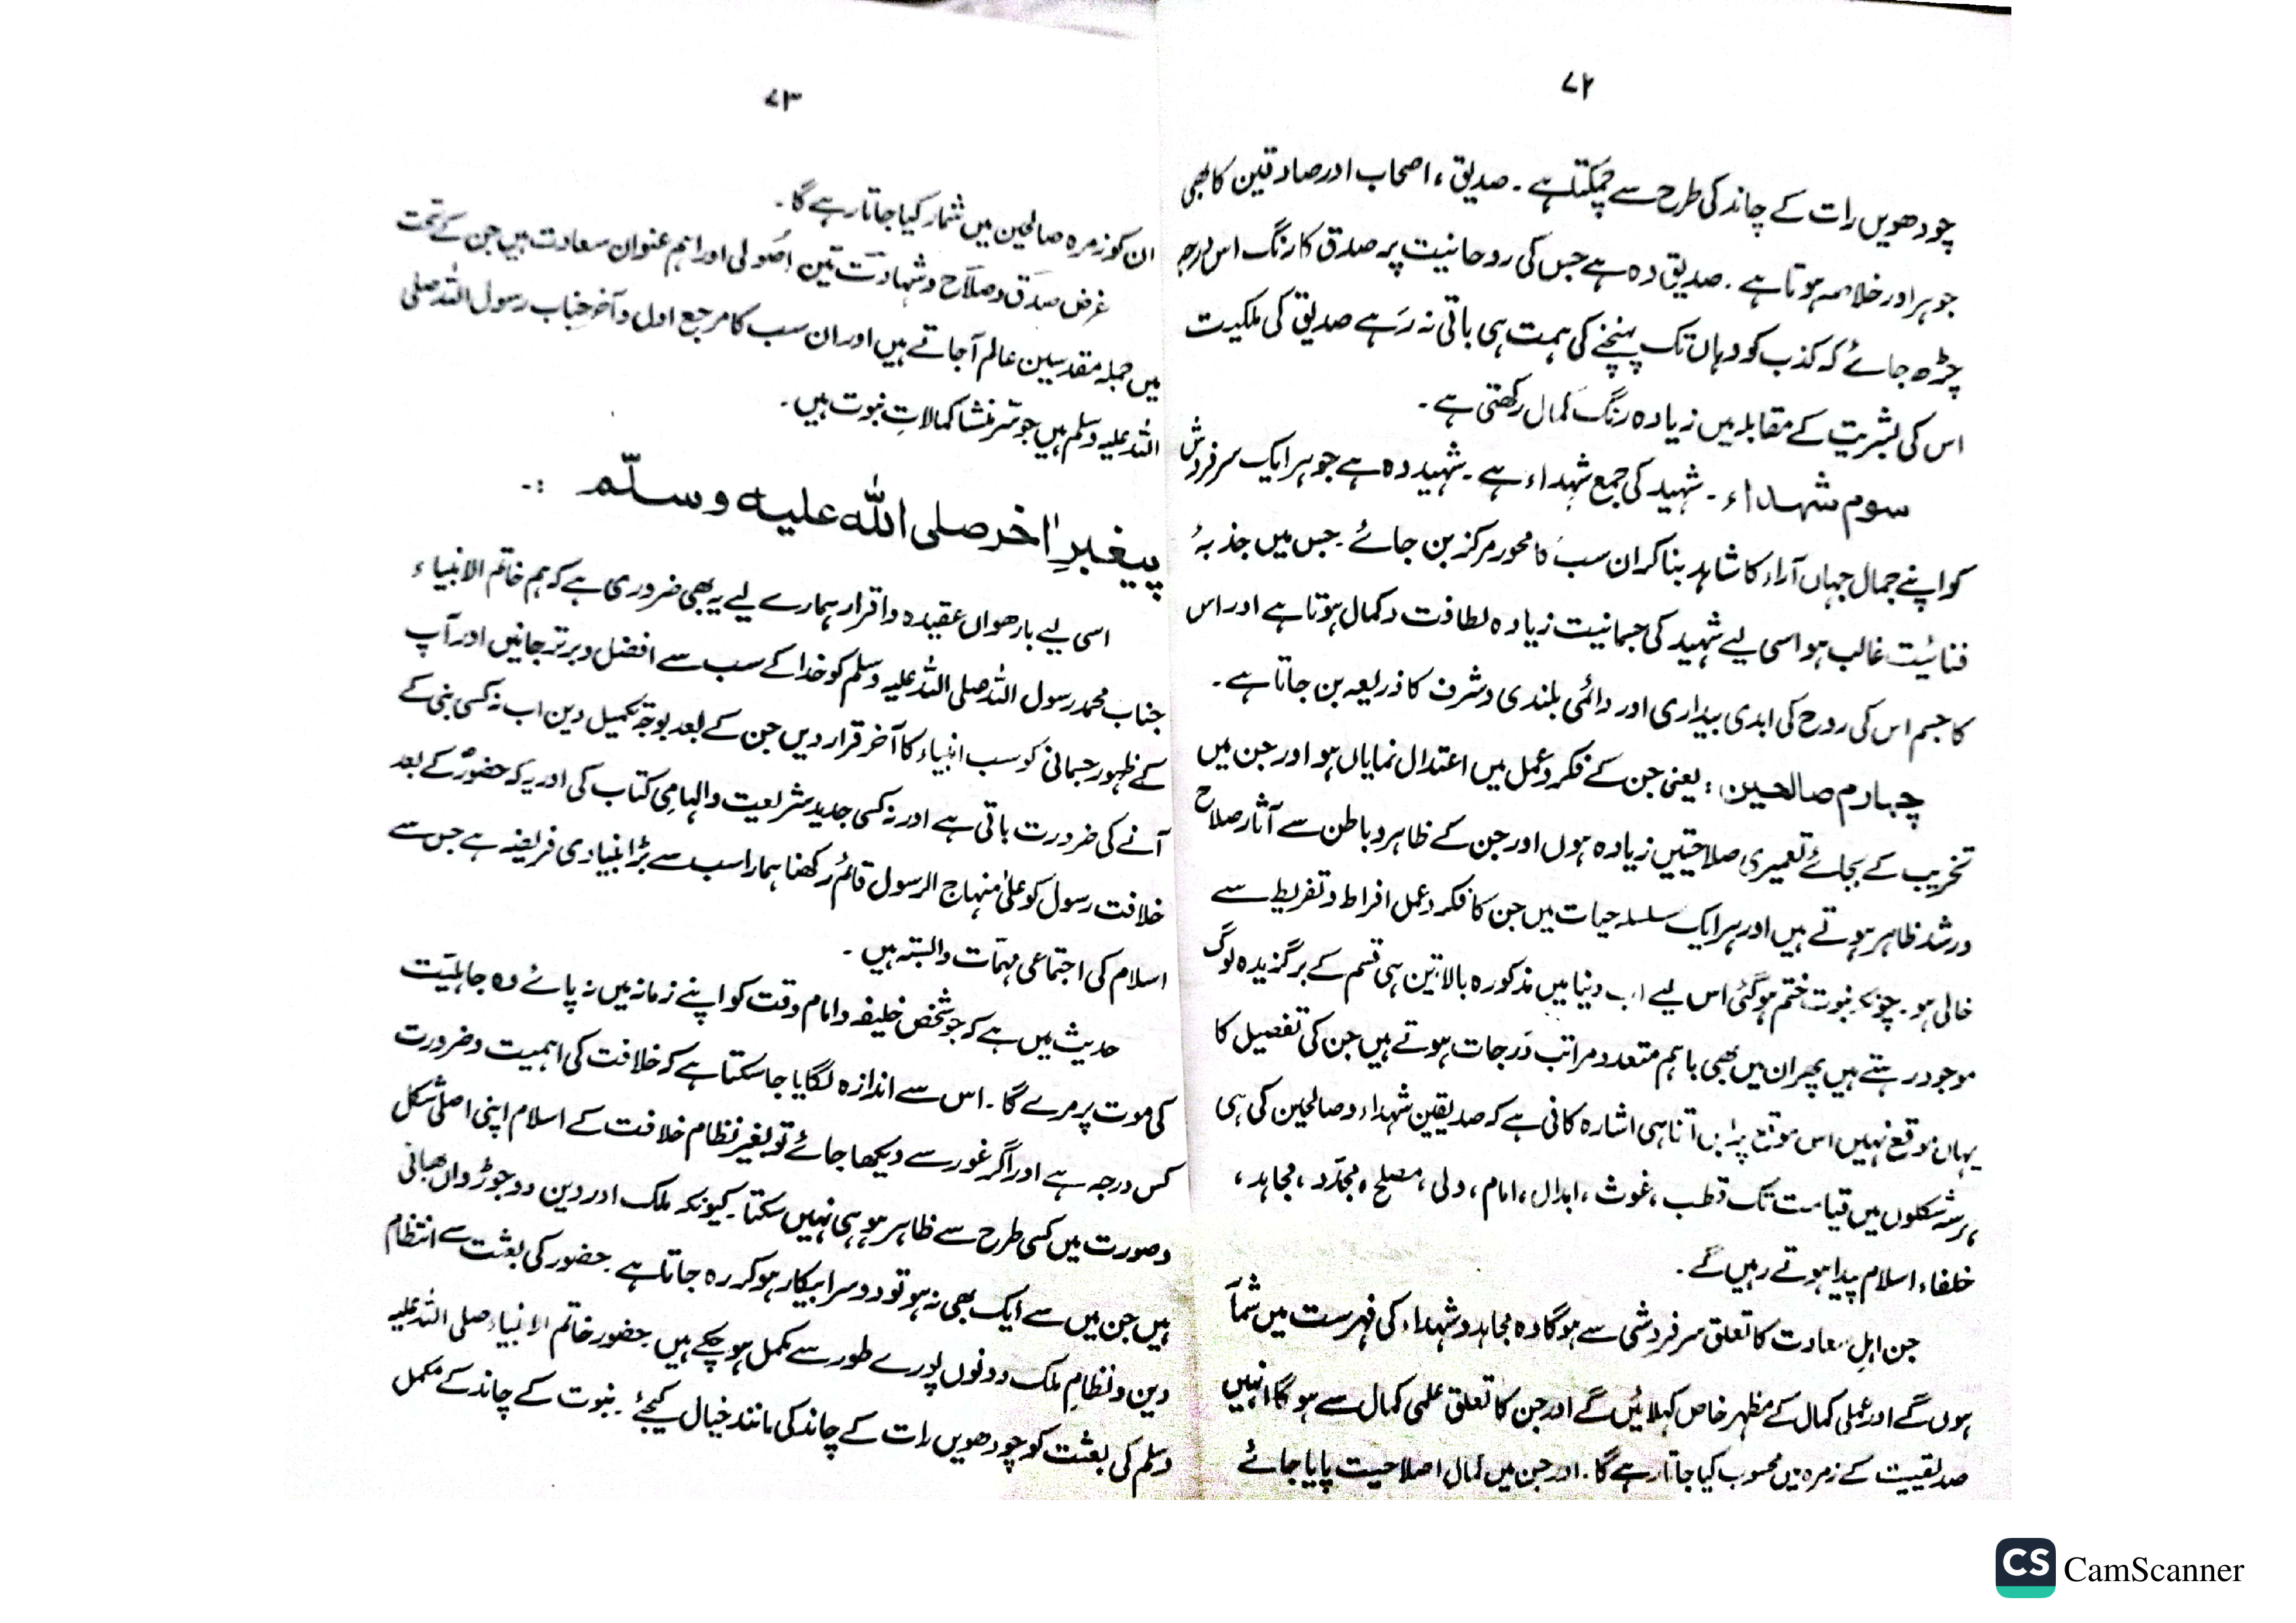 ۷۲
چودھویں رات کے چاند کی طرح سے چمکتا ہے۔ صدیق، اصحاب اور صادقین کا بھی
جوہر اور خلاصہ ہوتا ہے۔ صدیق وہ ہے جس کی روحانیت پر صدق کا رنگ اس درجہ
چڑھ جائے کہ کذب کو وہاں تک پہنچنے کی ہمت ہی باقی نہ رہے صدیق کی ملکیت
اس کی بشریت کے مقابلہ میں زیادہ رنگ کمال رکھتی ہے۔
سوم شہداء۔ شہید کی جمع شہداء ہے۔ شہید وہ ہے جو ہر ایک سرفروش
کو اپنے جمال جہاں آراء کا شاہد بنا کر ان سب کا محور مرکز بن جائے۔ جس میں جذبۂ
فنائیت غالب ہو اسی لیے شہید کی جسمانیت زیادہ لطافت و کمال ہوتا ہے اور اس
کا جسم اس کی روح کی ابدی بیداری اور دائمی بلندی و شرف کا ذریعہ بن جاتا ہے۔
چہارم صالحین: یعنی جن کے فکر و عمل میں اعتدال نمایاں ہو اور جن میں
تخریب کے بجائے تعمیری صلاحیتیں زیادہ ہوں اور جن کے ظاہر و باطن سے آثار صلاح
و رشد ظاہر ہوتے ہیں اور ہر ایک سلسلہ حیات میں جن کا فکر و عمل افراط و تفریط سے
خالی ہو۔ چونکہ نبوت ختم ہوگئی اس لیے اب دنیا میں مذکورہ بالا تین ہی قسم کے برگزیدہ لوگ
موجود رہتے ہیں پھر ان میں بھی باہم متعدد مراتب و درجات ہوتے ہیں جن کی تفصیل کا
یہاں موقع نہیں اس موقع پر بس اتنا ہی اشارہ کافی ہے کہ صدیقین شہداء و صالحین کی ہی
ہر سہ شکلوں میں قیامت تک قطب، غوث، ابدال، امام، ولی، مصلح، مجدّد، مجاہد،
خلفاء اسلام پیدا ہوتے رہیں گے۔
جن اہلِ سعادت کا تعلق سرفروشی سے ہوگا وہ مجاہد و شہداء کی فہرست میں شمار
ہوں گے اور عملی کمال کے مظہر خاص کہلائیں گے اور جن کا تعلق علمی کمال سے ہوگا انہیں
صدیقیت کے زمرہ میں محسوب کیا جاتا رہے گا۔ اور جن میں کمال اصلاحیت پایا جائے
۷۳
ان کو زمرہ صالحین میں شمار کیا جاتا رہے گا۔
غرض صدق و صلاح و شہادت تین اُصولی اور اہم عنوان سعادت ہیں جن کے تحت
میں جملہ مقدسین عالم آجاتے ہیں اور ان سب کا مرجع اول و آخر جناب رسول اللہ صلی
اللہ علیہ وسلم ہیں جو سر منشا کمالاتِ نبوت ہیں۔
پیغمبرِ اٰخر صلی اللہ علیہ وسلّم :-
اسی لیے بارھواں عقیدہ و اقرار ہمارے لیے یہ بھی ضروری ہے کہ ہم خاتم الانبیاء
جناب محمد رسول اللہ صلی اللہ علیہ وسلم کو خدا کے سب سے افضل و برتر جانیں اور آپ
کے ظہور جسمانی کو سب انبیاء کا آخر قرار دیں جن کے بعد بوجہ تکمیل دین اب نہ کسی نبی کے
آنے کی ضرورت باقی ہے اور نہ کسی جدید شریعت و الہامی کتاب کی اور یہ کہ حضورؐ کے بعد
خلافت رسول کو علیٰ منہاج الرسول قائم رکھنا ہمارا سب سے بڑا بنیادی فریضہ ہے جس سے
اسلام کی اجتماعی مہمّات وابستہ ہیں۔
حدیث میں ہے کہ جو شخص خلیفہ و امام وقت کو اپنے زمانہ میں نہ پائے وہ جاہلیّت
کی موت پر مرے گا۔ اس سے اندازہ لگایا جاسکتا ہے کہ خلافت کی اہمیت و ضرورت
کس درجہ ہے اور اگر غور سے دیکھا جائے تو بغیر نظام خلافت کے اسلام اپنی اصلی شکل
و صورت میں کسی طرح سے ظاہر ہو ہی نہیں سکتا۔ کیونکہ ملک اور دین دو جوڑواں بھائی
ہیں جن میں سے ایک بھی نہ ہو تو دوسرا بیکار ہو کر رہ جاتا ہے۔ حضور کی بعثت سے انتظام
دین و نظامِ ملک دونوں پورے طور سے مکمل ہو چکے ہیں۔ حضور خاتم الانبیاء صلی اللہ علیہ
وسلم کی بعثت کو چودھویں رات کے چاند کی مانند خیال کیجئے۔ نبوت کے چاند کے مکمل
CS CamScanner